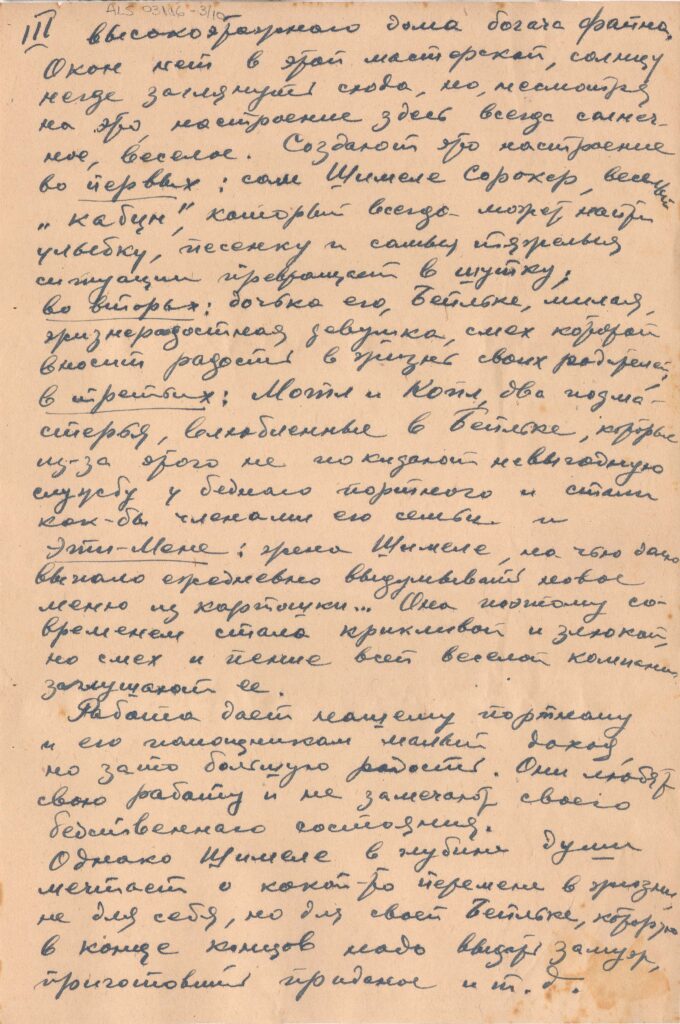 ALS 03116-3/10
III высокоэтажного дома богача Файна.
Окон нет в этой мастерской, солнцу
негде заглянуть сюда, но, несмотря
на это, настроение здесь всегда солнеч-
ное, веселое. Создают это настроение
во первых: сам Шимеле Сорокер, веселый
„кабцн", который всегда может найти
улыбку, песенку и самыя тяжелыя
ситуации превращает в шутку;
во вторых: дочька его, Бейльке, милая,
жизнерадостная девушка, смех которой
вносит радость в жизнь своих родителей,
в третьих: Мотл и Копл, два подма-
стерья, влюбленные в Бейльке, которые
из-за этого не покидают невыгодную
службу у бедного портного и стали
как-бы членами его семьи и
Эти-Мене: жена Шимеле, на чью долю
выпало ежедневно выдумывать новое
меню из картошки... Она поэтому со-
временем стала крикливой и злюкой,
но смех и пение всей веселой компании
заглушают ее.
Работа дает нашему портному
и его помощникам малый доход,
но зато большую радость. Они любят
свою работу и не замечают своего
бедственнаго состояния.
Однако Шимеле в глубине души
мечтает о какой-то перемене в жизни,
не для себя, но для своей Бейльке, которую
в конце концов надо выдать замуж,
приготовить приданое и т. д.